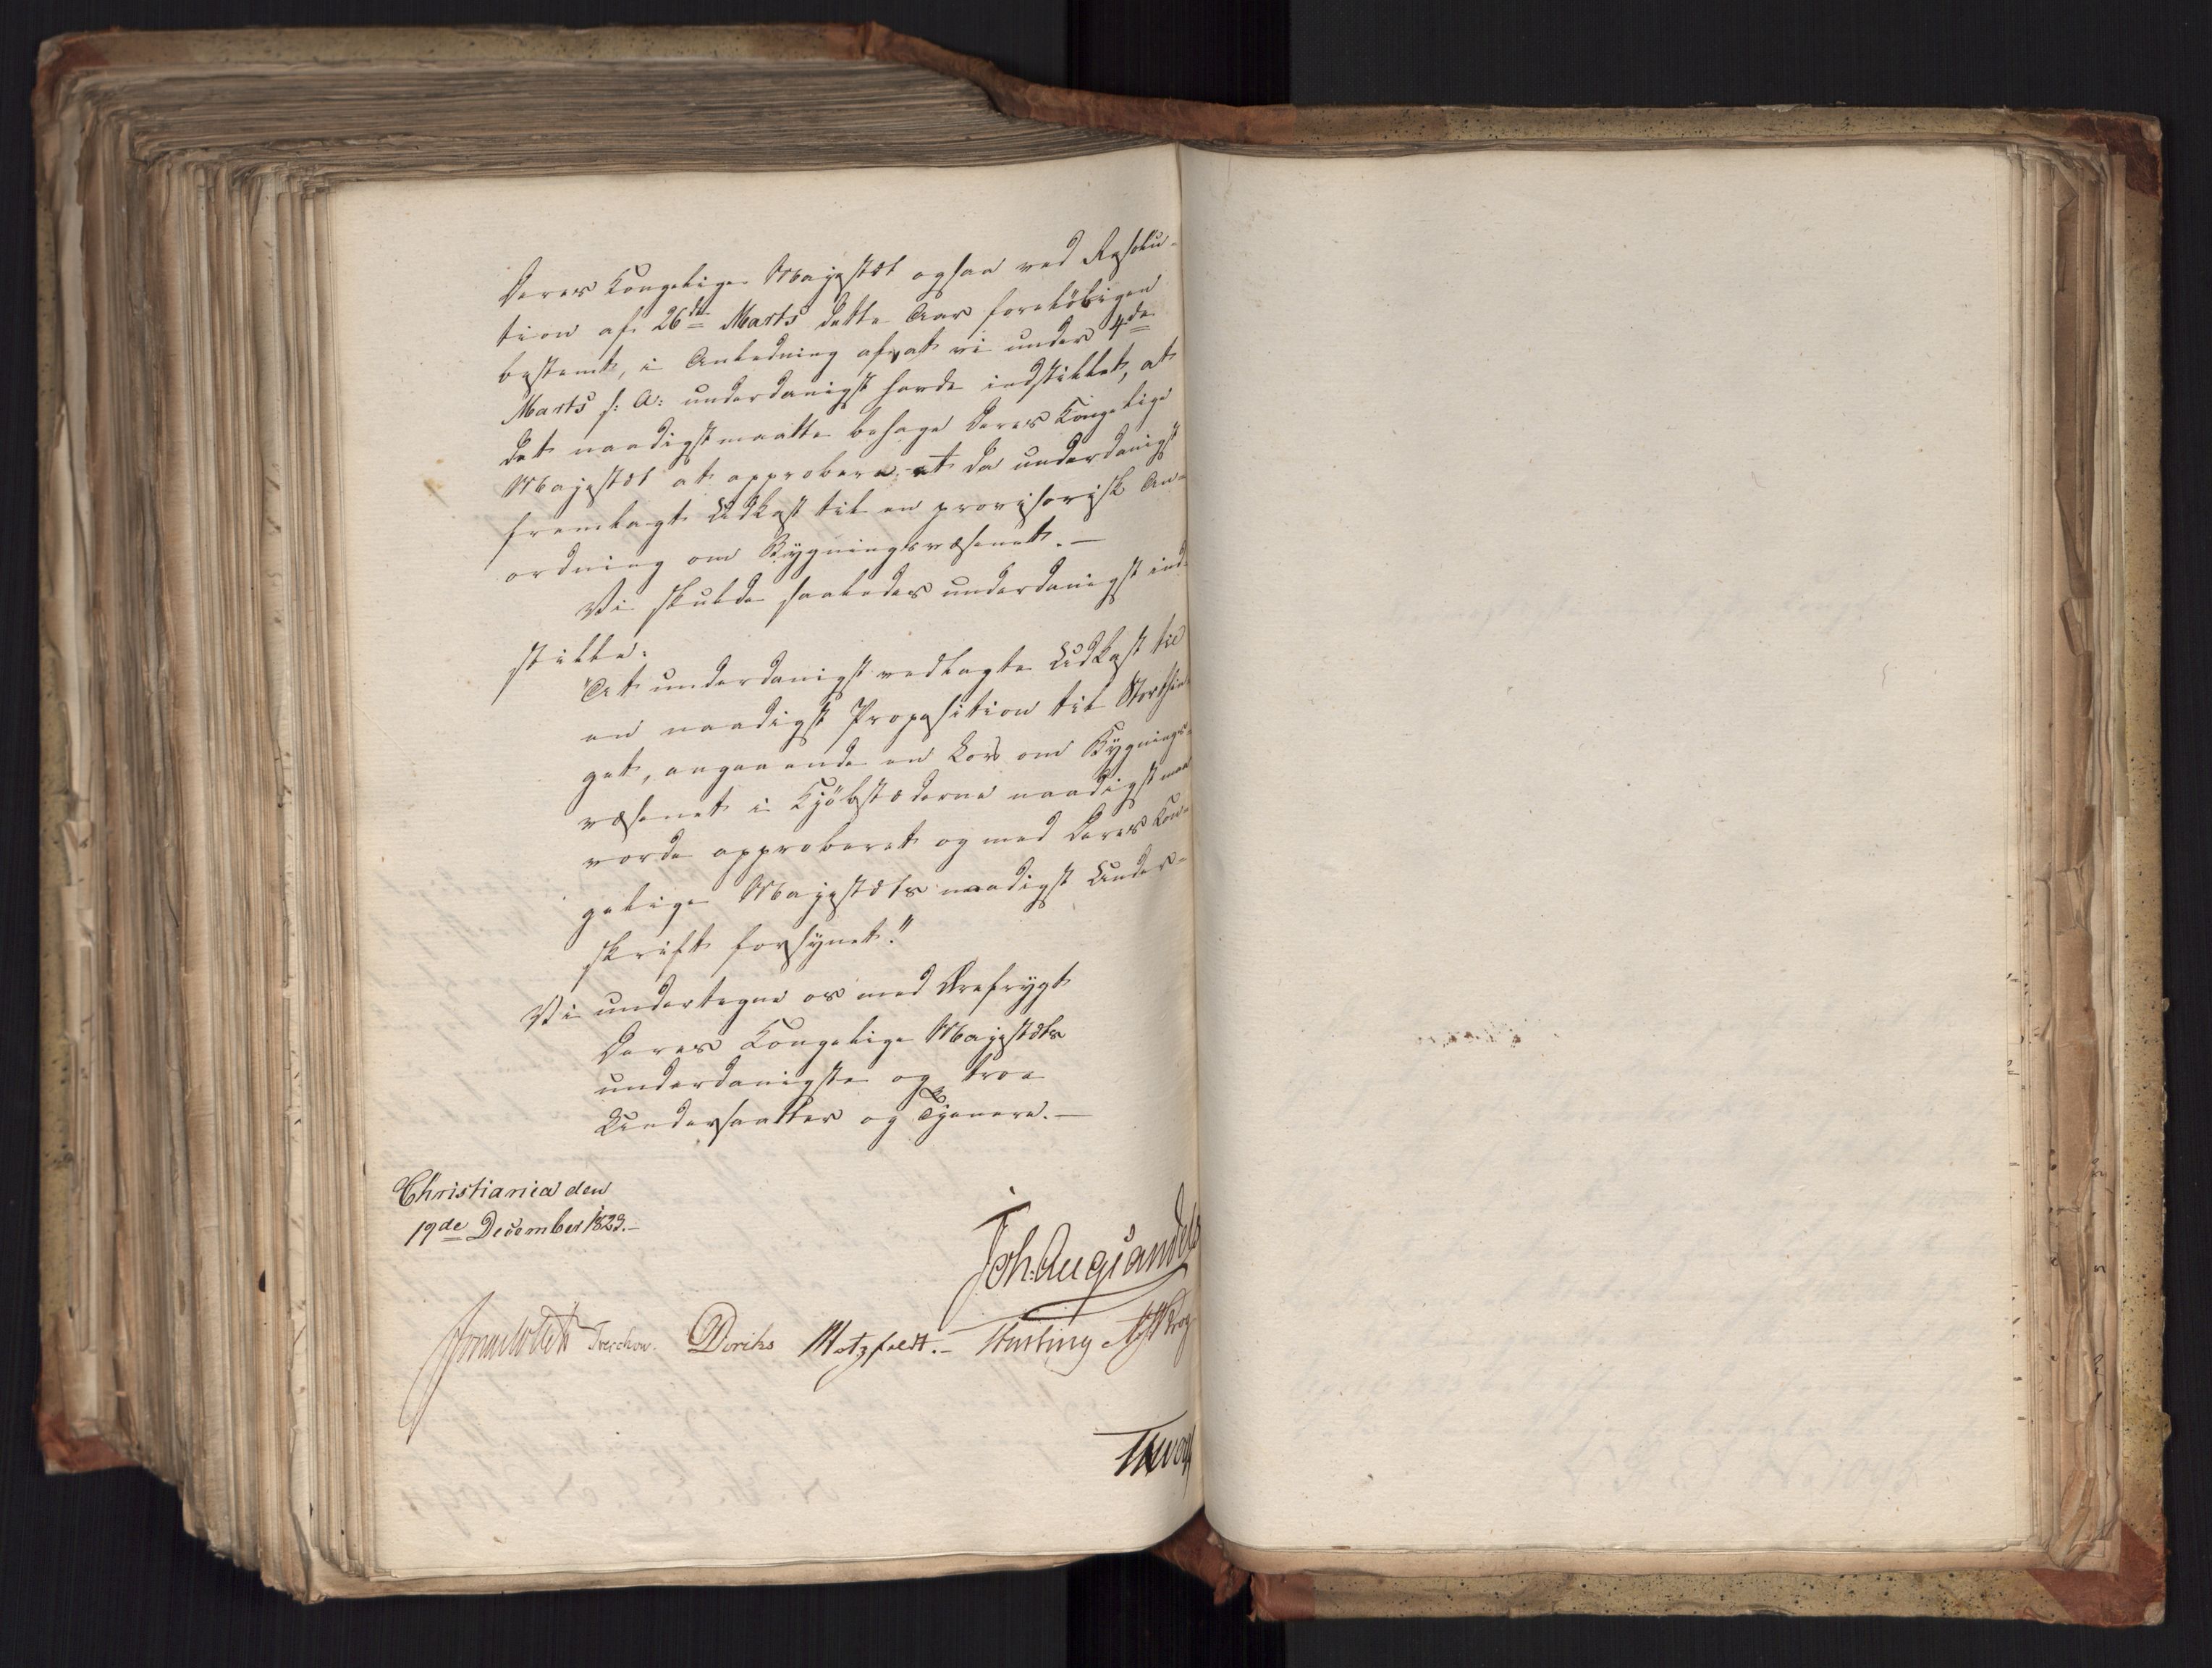 Deres Kongelige Majestæt ogsaa ved Resolu-
tion af 26de Marts dette Aar foreløbigen
bestemt, i Anledning af, at vi under 4de
Marts s: A: underdanigst havde indstillet, at
det naadigst maatte behage Deres Kongelige
Majestæt at approbere et da underdanigst
fremlagt Udkast til en provisorisk An-
ordning om Bygningsvæsenet. —
Vi skulde saaledes underdanigst ind-
stille:
"At underdanigst vedlagte Udkast til
en naadigst Proposition til Storthin-
get, angaaende en Lov om Bygnings-
væsenet i Kjöbstæderne naadigst maa
vorde approberet og med Deres Kon-
gelige Majestæts naadigst Under-
skrift forsynet."
Vi undertegne os med Ærefrygt
Deres Kongelige Majestæts
underdanigste og troe
Undersaatter og Tjenere. —
Christiania den
19de December 1823. —
Joh: Aug: Sandels
Jonas Collett Treschow. Diriks Motzfeldt. — Fasting Krog